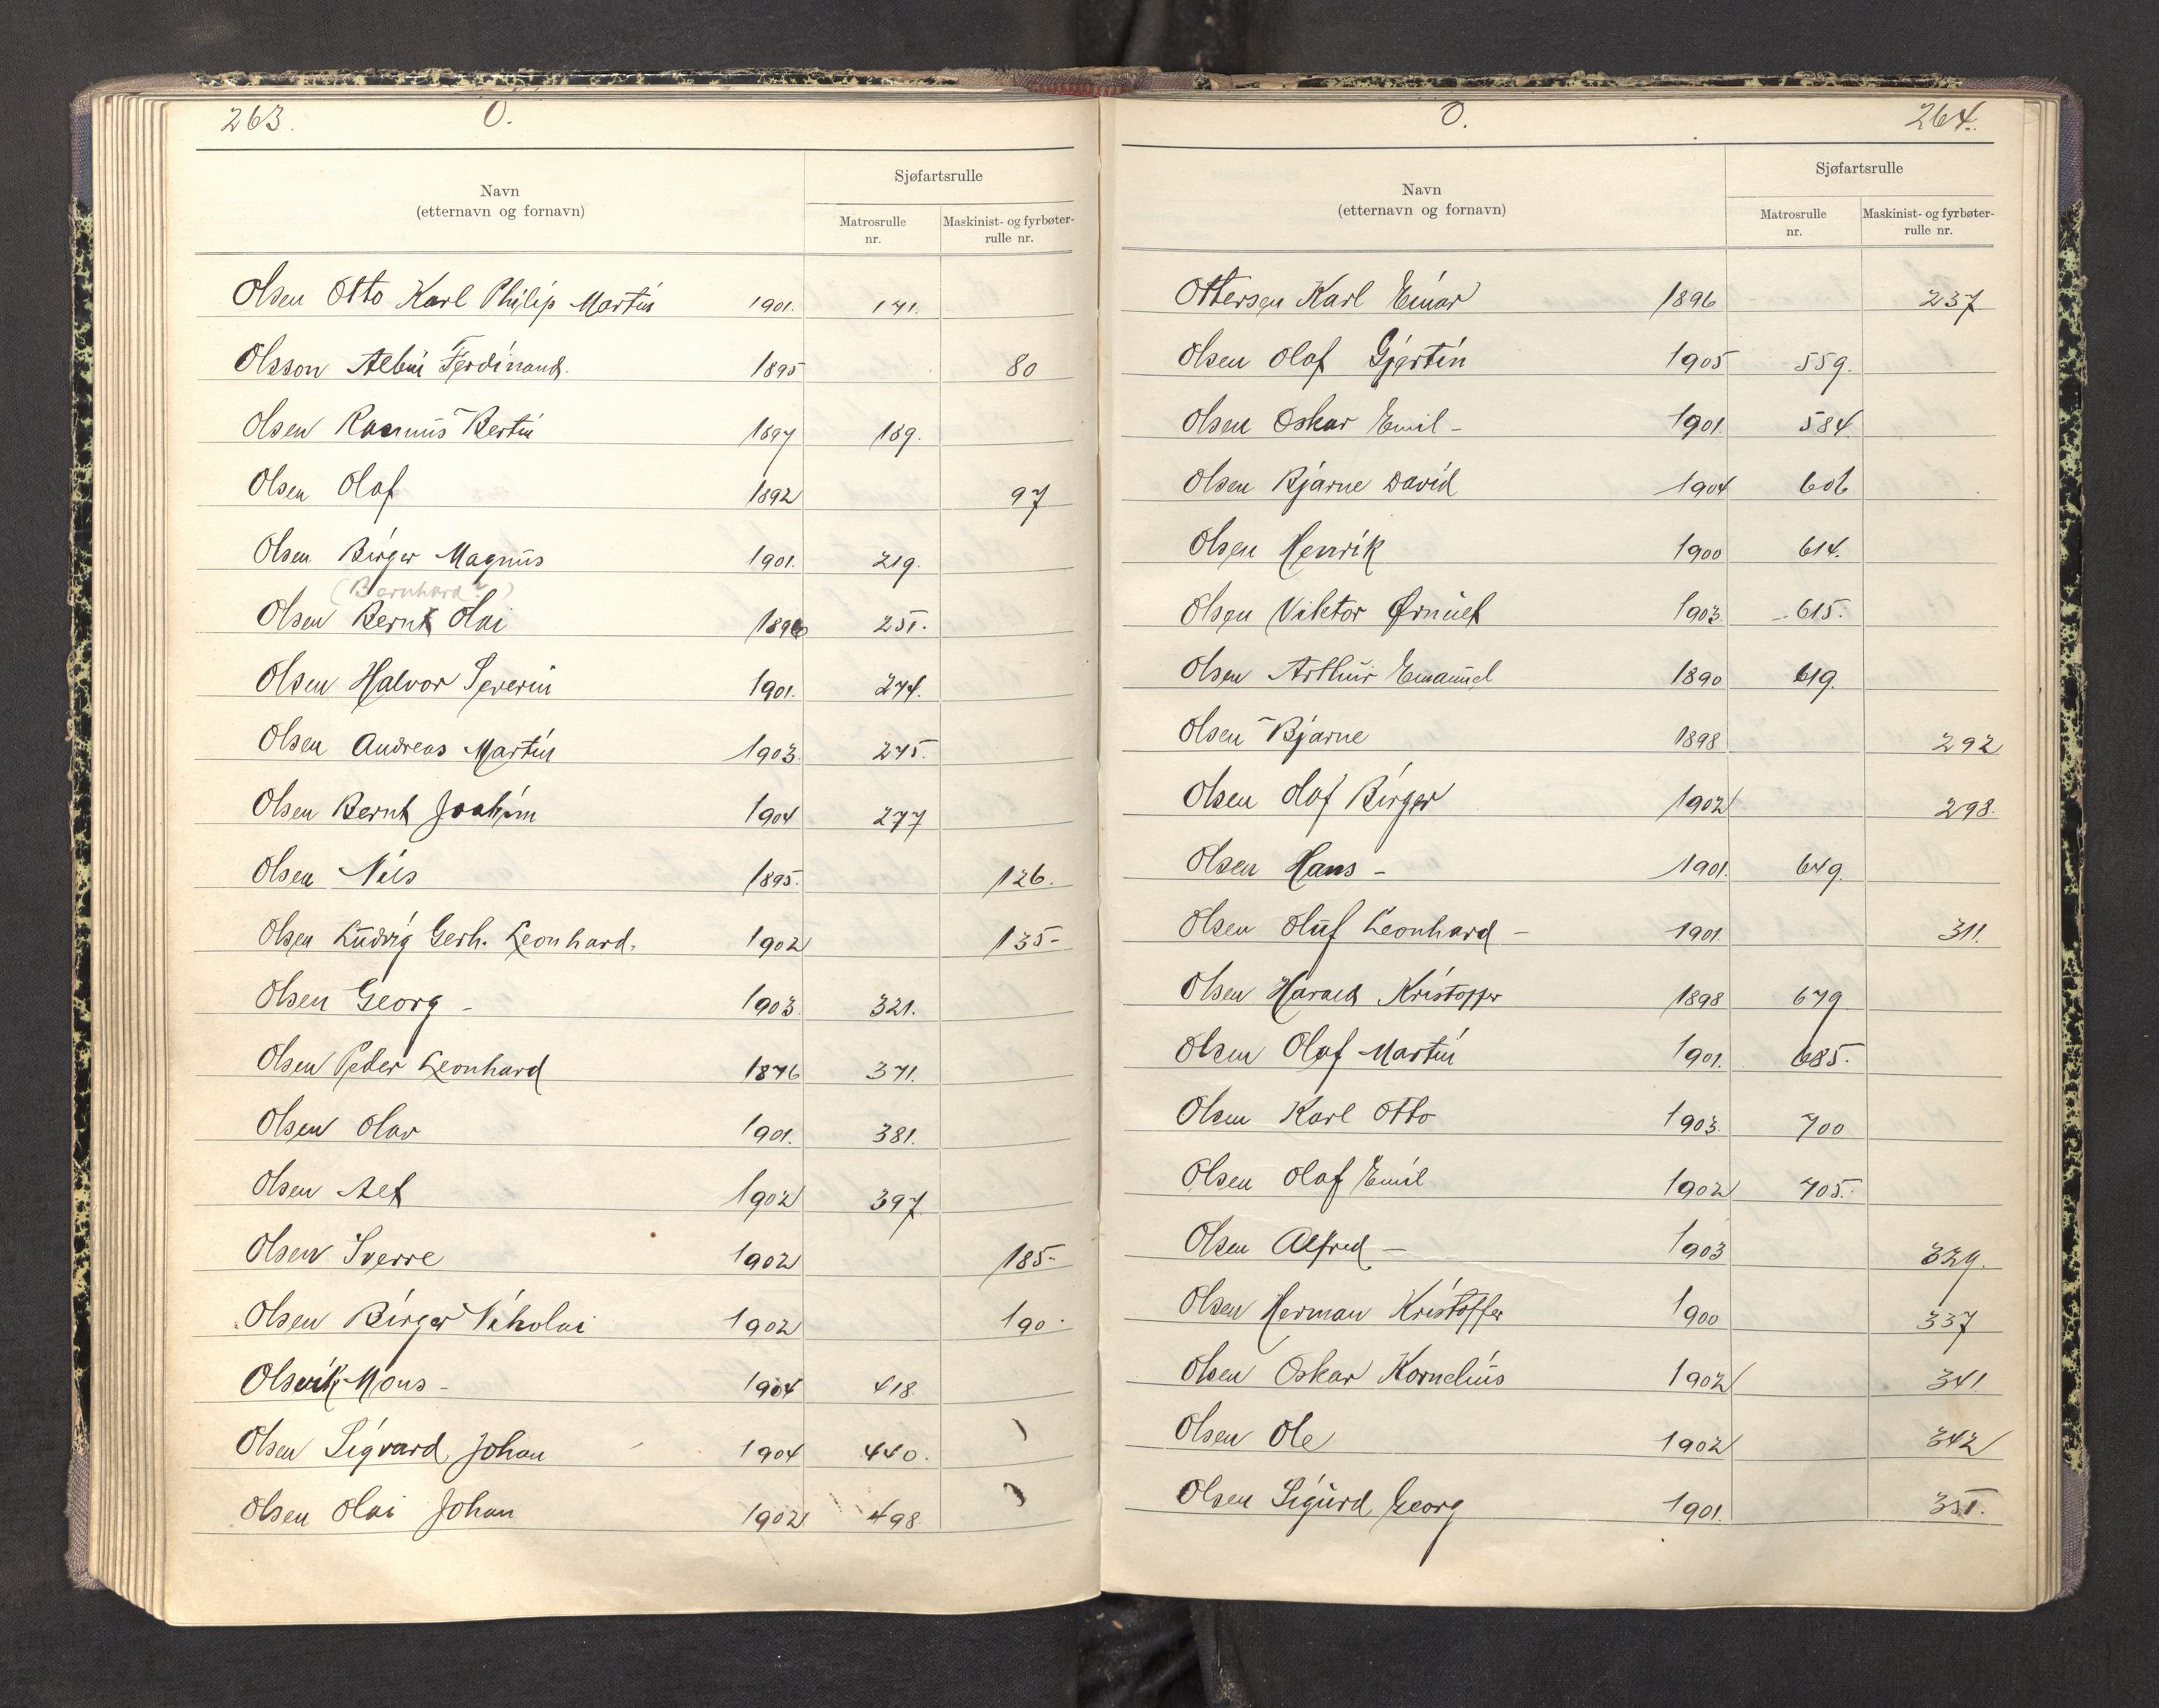 263. O.
Navn
(etternavn og fornavn)
Sjøfartsrulle
Matrosrulle
nr.
Maskinist- og fyrbøter-
rulle nr.
Olsen Otto Karl Philip Martin 1901. 171.
Olsson Albin Ferdinand. 1895 80
Olsen Rasmus Bertin 1897 189.
Olsen Olaf 1892 97
Olsen Birger Magnus 1901. 219.
(Bernhard?)
Olsen Bernt Olai 1896 251.
Olsen Halvor Severin 1901. 274.
Olsen Andreas Martin 1903. 275.
Olsen Bernt Joakim 1904 277
Olsen Nils 1895. 126.
Olsen Ludvig Gerh. Leonhard. 1902 135-
Olsen Georg - 1903. 321.
Olsen Peder Leonhard 1876 371.
Olsen Olav 1901. 381.
Olsen Alf 1902 397
Olsen Sverre 1902 185-
Olsen Birger Nikolai 1902 190.
Olsvik Mons - 1904 418.
Olsen Sigvard Johan 1904 440.
Olsen Olai Johan 1902 498.
O. 264.
Navn
(etternavn og fornavn)
Sjøfartsrulle
Matrosrulle
nr.
Maskinist- og fyrbøter-
rulle nr.
Ottersen Karl Einar 1896 237
Olsen Olaf Gjertin 1905 559.
Olsen Oskar Emil - 1901. 584.
Olsen Bjarne David 1904 606
Olsen Henrik 1900 614.
Olsen Viktor Ørnulf 1903. 615.
Olsen Arthur Emanuel 1890 619.
Olsen Bjarne 1898 292
Olsen Olaf Birger 1902 298.
Olsen Hans - 1901. 649.
Olsen Oluf Leonhard - 1901. 311.
Olsen Harald Kristoffer 1898 679
Olsen Olaf Martin 1901. 685.
Olsen Karl Otto 1903. 700
Olsen Olaf Emil 1902 705.
Olsen Alfred - 1903 329.
Olsen Herman Kristoffer 1900 337
Olsen Oskar Kornelius 1902 341
Olsen Ole 1902 342
Olsen Sigurd Georg 1901. 351.